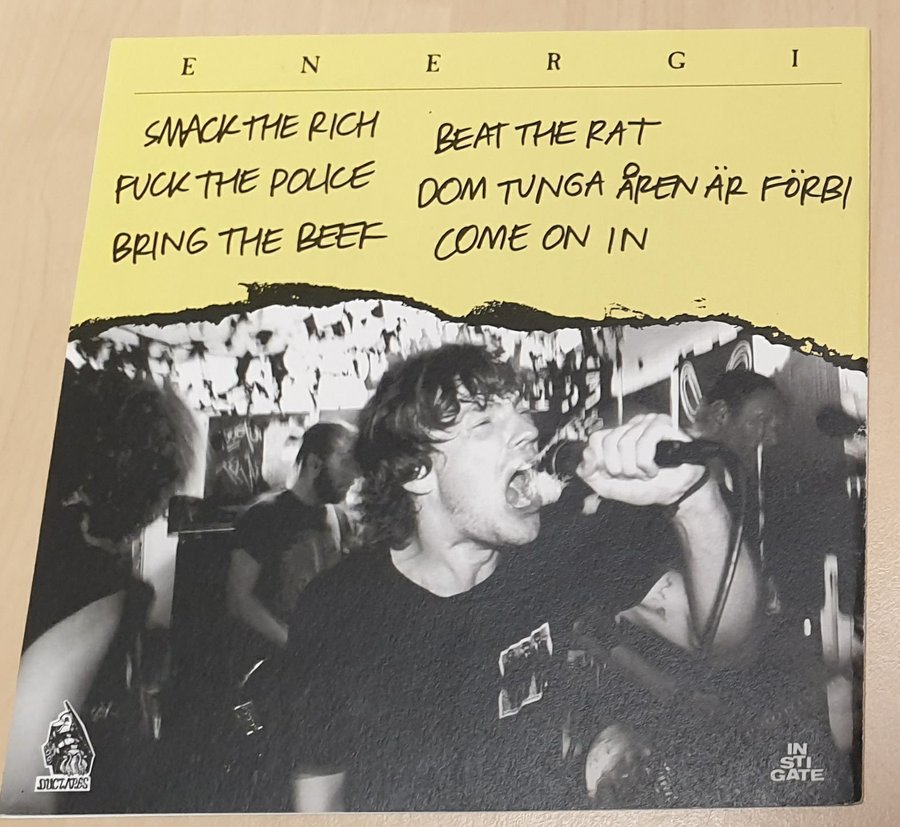 ENERGI
SMACK THE RICH
FUCK THE POLICE
BRING THE BEEF
BEAT THE RAT
DOM TUNGA ÅREN ÄR FÖRBI
COME ON IN
IN
STI
GATE